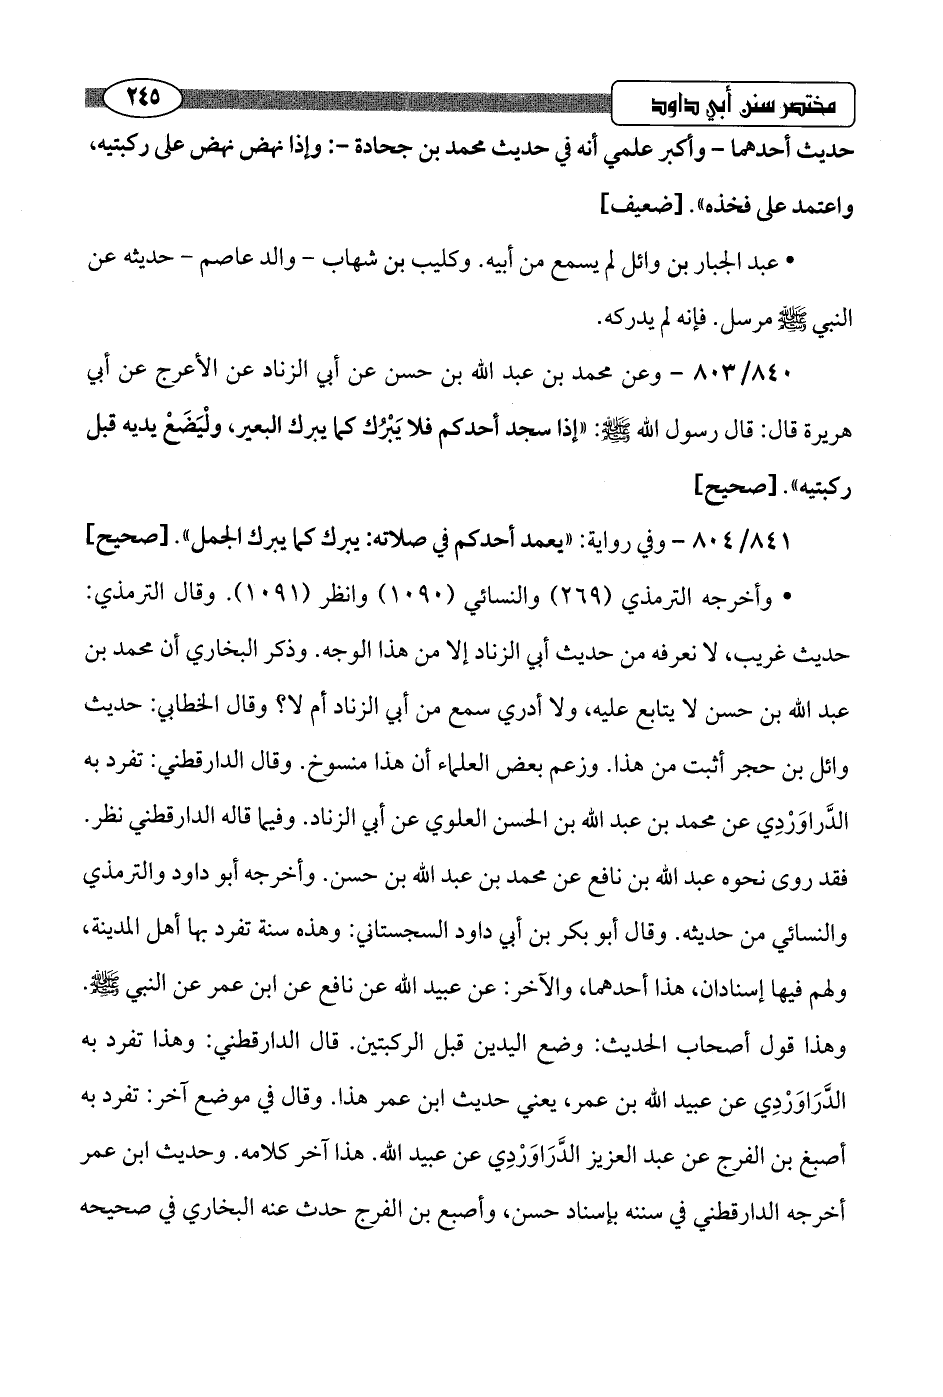 مختصر سنن أبي داود
٢٤٥
حديث أحدهما - وأكبر علمي أنه في حديث محمد بن جحادة -: وإذا نهض نهض على ركبتيه،
واعتمد على فخذه». [ضعيف]
• عبد الجبار بن وائل لم يسمع من أبيه. وكليب بن شهاب - والد عاصم - حديثه عن
النبي ﷺ مرسل. فإنه لم يدركه.
٨٠٣/٨٤٠ - وعن محمد بن عبد الله بن حسن عن أبي الزناد عن الأعرج عن أبي
هريرة قال: قال رسول الله ﷺ: «إذا سجد أحدكم فلا يَبْرُك كما يبرك البعير، ولْيَضَعْ يديه قبل
ركبتيه». [صحيح]
٨٠٤/٨٤١ - وفي رواية: «يعمد أحدكم في صلاته: يبرك كما يبرك الجمل». [صحيح]
• وأخرجه الترمذي (٢٦٩) والنسائي (١٠٩٠) وانظر (١٠٩١). وقال الترمذي:
حديث غريب، لا نعرفه من حديث أبي الزناد إلا من هذا الوجه. وذكر البخاري أن محمد بن
عبد الله بن حسن لا يتابع عليه، ولا أدري سمع من أبي الزناد أم لا؟ وقال الخطابي: حديث
وائل بن حجر أثبت من هذا. وزعم بعض العلماء أن هذا منسوخ. وقال الدارقطني: تفرد به
الدَّراوَرْدِي عن محمد بن عبد الله بن الحسن العلوي عن أبي الزناد. وفيما قاله الدارقطني نظر.
فقد روى نحوه عبد الله بن نافع عن محمد بن عبد الله بن حسن. وأخرجه أبو داود والترمذي
والنسائي من حديثه. وقال أبو بكر بن أبي داود السجستاني: وهذه سنة تفرد بها أهل المدينة،
ولهم فيها إسنادان، هذا أحدهما، والآخر: عن عبيد الله عن نافع عن ابن عمر عن النبي ﷺ.
وهذا قول أصحاب الحديث: وضع اليدين قبل الركبتين. قال الدارقطني: وهذا تفرد به
الدَّرَاوَرْدِي عن عبيد الله بن عمر، يعني حديث ابن عمر هذا. وقال في موضع آخر: تفرد به
أصبغ بن الفرج عن عبد العزيز الدَّرَاوَرْدِي عن عبيد الله. هذا آخر كلامه. وحديث ابن عمر
أخرجه الدارقطني في سننه بإسناد حسن، وأصبع بن الفرج حدث عنه البخاري في صحيحه